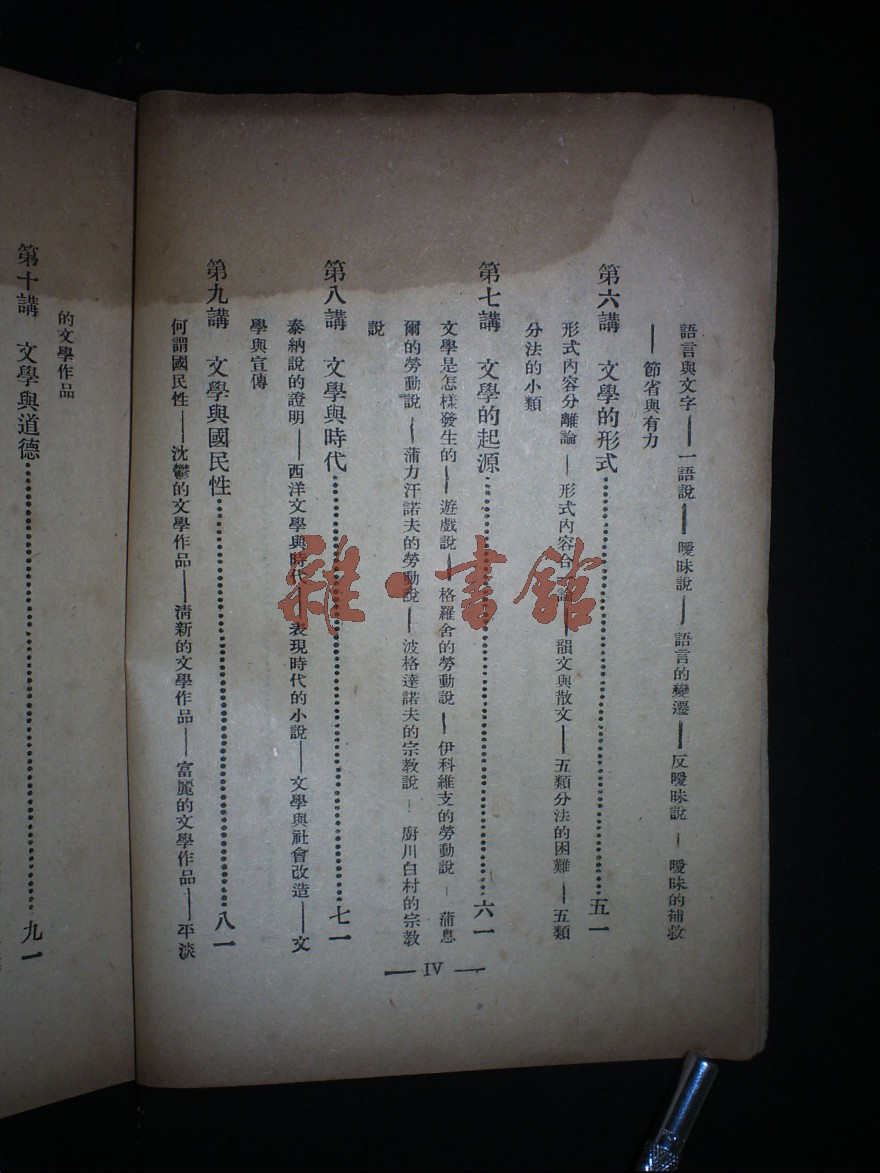 語言與文字——一語說——曖昧說——語言的變遷——反曖昧說—曖昧的補救
——節省與有力
第六講 文學的形式……五一
形式內容分離論——形式內容合 論——韻文與散文——五類分法的困難——五類
分法的小類
第七講 文學的起源……六一
文學是怎樣發生的——遊戲說——格羅舍的勞動說——伊科維支的勞動說—蒲息
爾的勞動說——蒲力汗諾夫的勞動說——波格達諾夫的宗教說—廚川白村的宗教
說
第八講 文學與時代……七一
泰納說的證明——西洋文學與時代——表現時代的小說——文學與社會改造——文
學與宣傳
第九講 文學與國民性……八一
何謂國民性——沈鬱的文學作品——清新的文學作品——富麗的文學作品——平淡
— IV —
的文學作品
第十講 文學與道德……九一
雜·書館